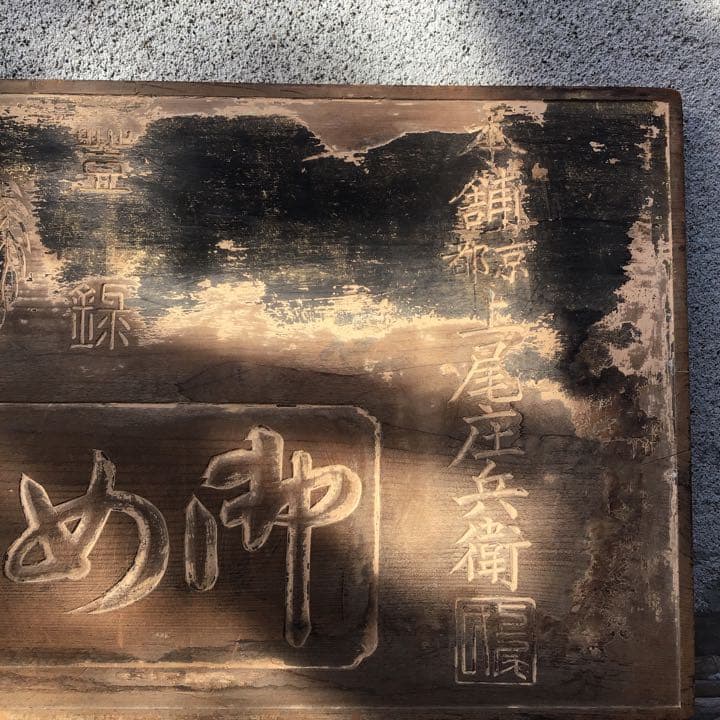 本舗 京都 上尾庄兵衛
登録
御め